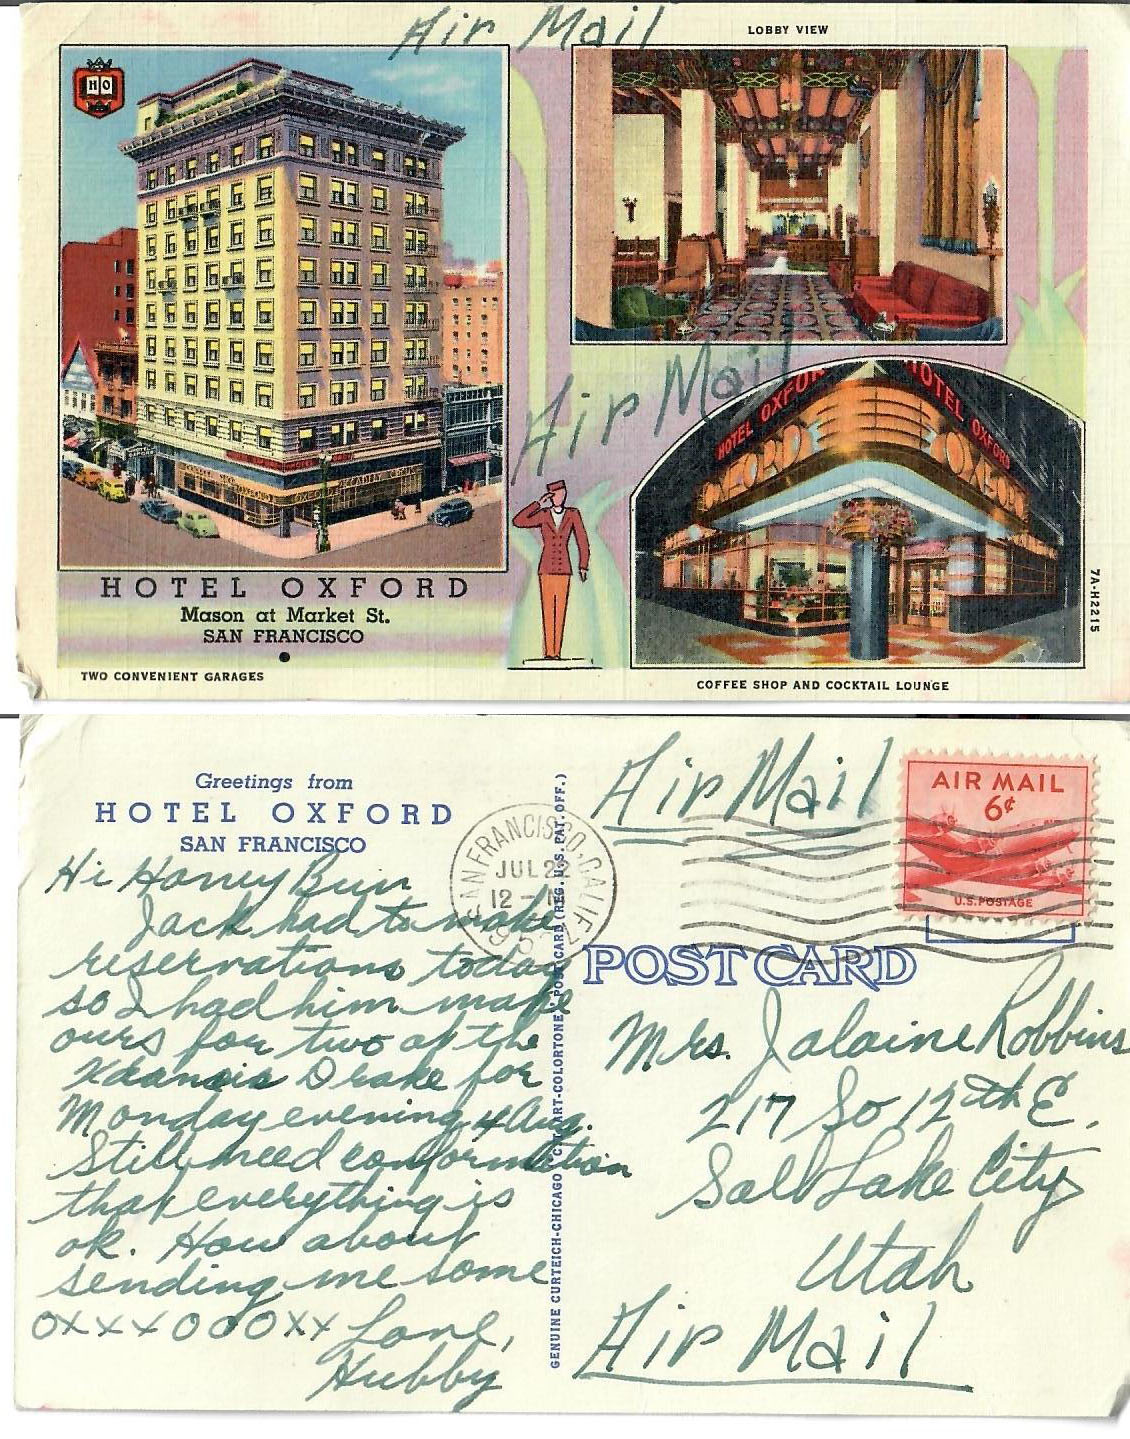 Air Mail
LOBBY VIEW
H O
Air Mail
HOTEL OXFORD
HOTEL OXFORD
HOTEL OXFORD
Mason at Market St.
SAN FRANCISCO
TWO CONVENIENT GARAGES
COFFEE SHOP AND COCKTAIL LOUNGE
7A-H2215
Greetings from
HOTEL OXFORD
SAN FRANCISCO
Hi Honey Bun
Jack had to make
reservations today
so I had him make
ours for two at the
Drake for
Monday evening 4 Aug.
Still need conformation
that everything is
ok. How about
sending me some
OXXXOOOXX Love,
Hubby
SAN FRANCISCO, CALIF.
JUL 22
GENUINE CURTEICH-CHICAGO "C.T. ART-COLORTONE" POST CARD (REG. U.S. PAT. OFF.)
Air Mail
AIR MAIL
6¢
U.S. POSTAGE
POST CARD
Mrs. Jalaine Robbins
217 So 12th E.
Salt Lake City
Utah
Air Mail